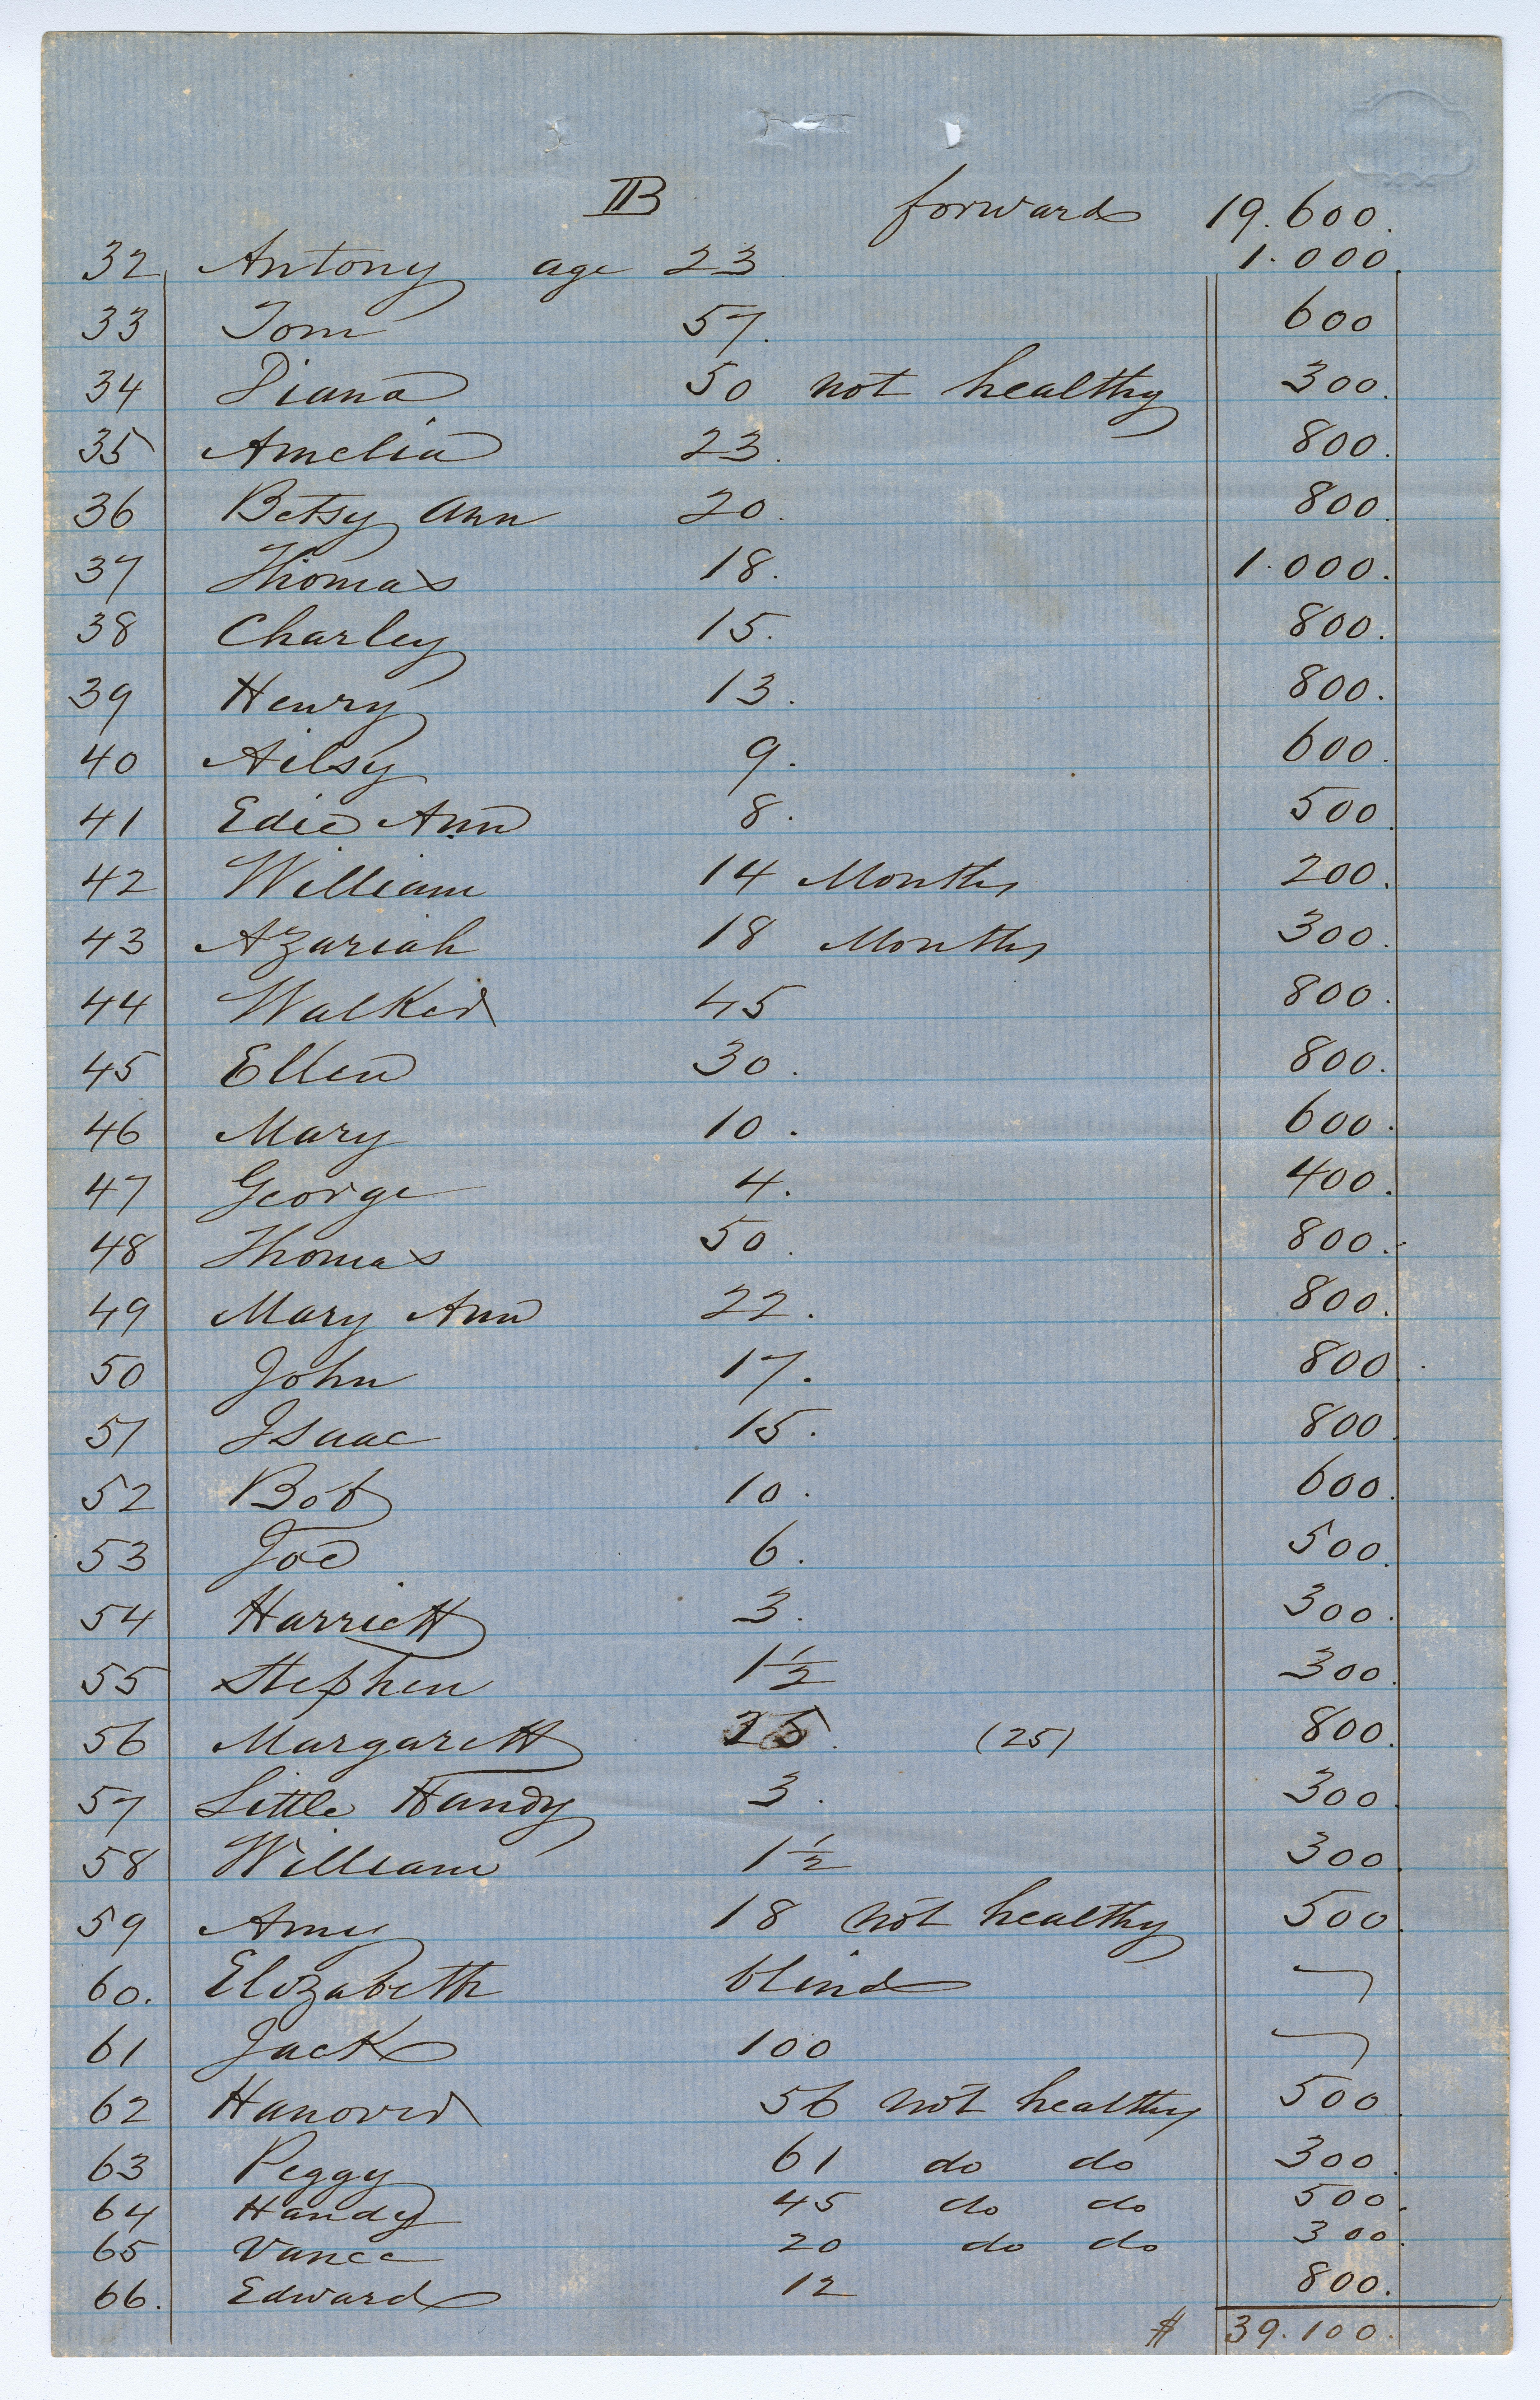 IIB forward 19.600.
32 Antony age 23 1.000.
33 Tom 57. 600
34 Diana 50 not healthy 300.
35 Amelia 23. 800.
36 Betsy Ann 20. 800.
37 Thomas 18. 1.000.
38 Charley 15. 800.
39 Henry 13. 800.
40 Ailsy 9. 600.
41 Edie Ann 8. 500.
42 William 14 Months 200.
43 Azariah 18 Months 300.
44 Walker 45 800.
45 Ellen 30. 800.
46 Mary 10. 600.
47 George 4. 400.
48 Thomas 50. 800.
49 Mary Ann 22. 800.
50 John 17. 800.
51 Isaac 15. 800.
52 Bob 10. 600.
53 Joe 6. 500.
54 Harriett 3. 300.
55 Stephen 1½ 300.
56 Margarett 25. (25) 800.
57 Little Handy 3. 300.
58 William 1½ 300.
59 Amy 18 not healthy 500.
60. Elizabeth blind
61 Jack 100
62 Hanover 56 not healthy 500.
63 Peggy 61 do do 300.
64 Handy 45 do do 500.
65 Vance 20 do do 300.
66. Edward 12 800.
$ 39.100.